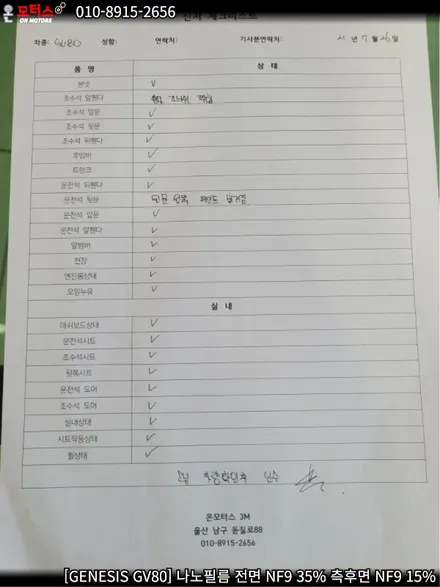 온 모터스 ON MOTORS 010-8915-2656
차종: GV80 성함: 연락처: 기사분연락처: 21년 7월 26일
품 명 상 태
본넷 ✓
조수석 앞휀다
조수석 앞문 ✓
조수석 뒷문 ✓
조수석 뒤휀다 ✓
뒤범퍼 ✓
트렁크 ✓
운전석 뒤휀다 ✓
운전석 뒷문 페인트
운전석 앞문 ✓
운전석 앞휀다 ✓
앞범퍼 ✓
천장 ✓
엔진룸상태 ✓
오일누유 ✓
실 내
대쉬보드상태 ✓
운전석시트 ✓
조수석시트 ✓
뒷쪽시트 ✓
운전석 도어 ✓
조수석 도어 ✓
실내상태 ✓
시트작동상태 ✓
휠상태 ✓
인수
온모터스 3M
울산 남구 돋질로88
010-8915-2656
[GENESIS GV80] 나노필름 전면 NF9 35% 측후면 NF9 15%